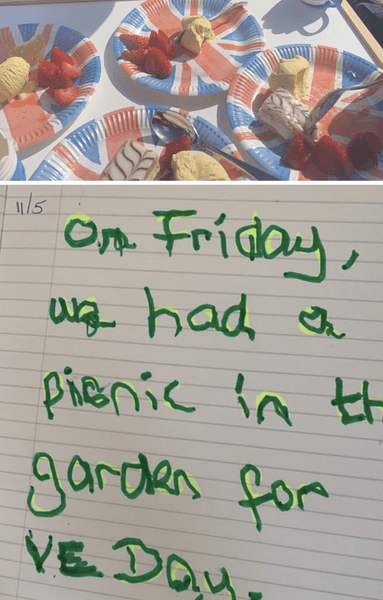 11/5
On Friday,
we had a
picnic in th
garden for
VE Day.